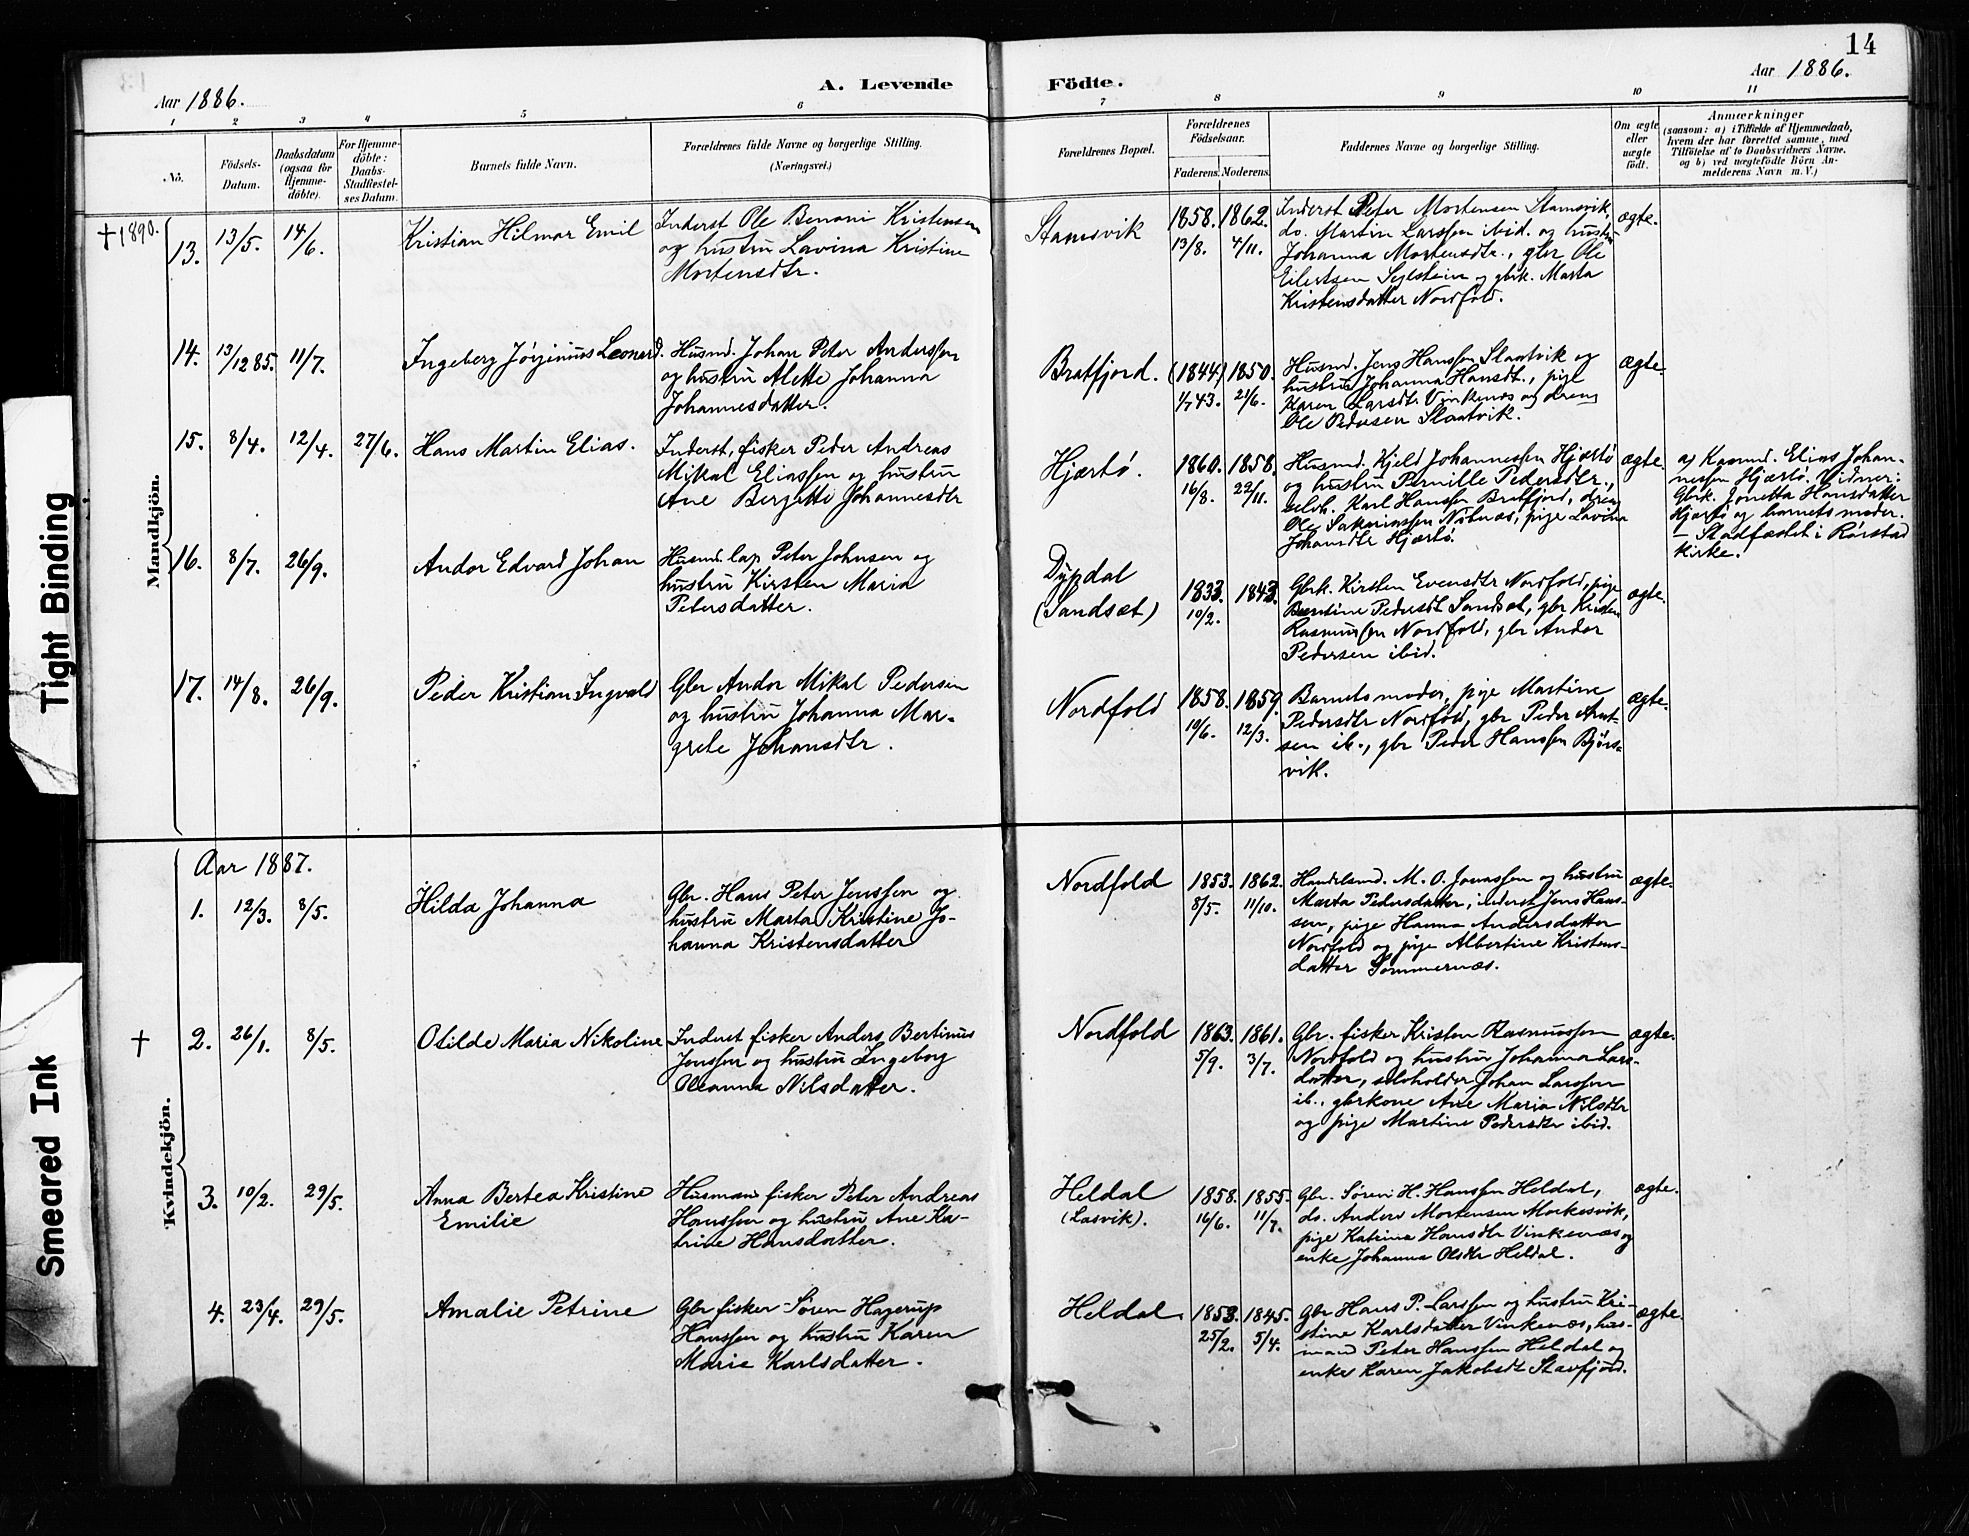 14
A. Levende Födte.
Aar 1886.
Aar 1886.
1 2 3 4 5 6 7 8 9 10 11
No.
Födsels-Datum.
Daabsdatum (ogsaa for Hjemmedöbte).
For Hjemmedöbte: Daabs-Stadfæstelses Datum.
Barnets fulde Navn.
Forældrenes fulde Navne og borgerlige Stilling.
(Næringsvei.)
Forældrenes Bopæl.
Forældrenes Födselsaar.
Faderens. Moderens.
Faddernes Navne og borgerlige Stilling.
Om ægte eller uægte født.
Anmærkninger
(saasom: a) i Tilfælde af Hjemmedaab, hvem der har forrettet samme, med Tilföielse af to Daabsvidners Navne, og b) ved uægtefödte Börn Anmelderens Navn m. V.)
Mandkjön.
†1890.
13. 13/5. 14/6.
Kristian Hilmar Emil
Inderst Ole Benoni Kristensen
og hustru Lavina Kristine
Mortensdtr.
Stamsvik
1858. 1862.
13/8. 4/11.
Inderst Peter Mortensen Stamsvik,
do. Martin Larssen ibid. og hustru
Johanna Mortensdtr., gbr Ole
Eilertsen Sejlstein og gbrk. Marta
Kristensdatter Nordfold.
ægte.
14. 13/12 85. 11/7.
Ingeberg Jörginus Leonard.
Husmd. Johan Peter Anderssen
og hustru Alette Johanna
Johannesdatter.
Bratfjord.
(1844) 1850.
1/7 43. 21/6.
Husmd. Jens Hanssen Slaatvik og
hustru Johanna Hansdt., pige
Karen Larsdtr Vinkenæs og dreng
Ole Pedersen Slaatvik.
ægte.
15. 8/4. 12/4. 27/6.
Hans Martin Elias.
Inderst, fisker Peder Andreas
Mikal Eliassen og hustru
Ane Bergitte Johannesdtr
Hjærtö.
1860. 1858.
16/8. 22/11.
Husmd. Kjeld Johannessen Hjærtö
og hustru Pernille Pedersdtr.,
selvh. Karl Hanssen Bratfjord, dreng
Ole Sakariassen, pige Lavina
Johansdtr Hjærtö.
ægte.
a) Elias Johannessen Hjærtö. Vidner:
Gbrk. Jonetta Hansdatter
Hjærtö og barnets moder.
– Stadfæstet i Rörstad
kirke.
16. 8/7. 26/9.
Andor Edvard Johan
Husmd. lap Peter Johnsen og
hustru Kirsten Maria
Petersdatter.
Dypdal
(Sandsæt)
1833. 1843.
10/2.
Gbrk. Kirsten Evensdtr Nordfold, pige
Berntine Pedersdt Sandsæt, gbr Kristen
Rasmussen Nordfold, gbr Andor
Pedersen ibid.
ægte.
17. 14/8. 26/9.
Peder Kristian Ingvald
Gbr Andor Mikal Pedersen
og hustru Johanna Mar-
grete Johansdtr.
Nordfold
1858. 1859.
10/6. 12/3.
Barnets moder, pige Martine
Pedersdtr Nordfold, gbr Peder Arnt-
sen ib., gbr Peder Hanssen Björs-
vik.
ægte.
Kvindekjön.
Aar 1887.
1. 12/3. 8/5.
Hilda Johanna
Gbr. Hans Peter Jenssen og
hustru Marta Kristine Jo-
hanna Kristensdatter
Nordfold
1853. 1862.
8/5. 11/10.
Handelsmd. M. O. Jonassen og hustru
Marta Pedersdatter, inderst Jens Hans-
sen, pige Hanna Andersdatter
Nordfold og pige Albertine Kristens-
datter Sommernæs.
ægte.
† 2. 26/1. 8/5.
Otilde Maria Nikoline
Inderst fisker Anders Bertinus
Jenssen og hustru Ingeborg
Oleanna Nilsdatter.
Nordfold
1863. 1861.
5/9. 3/7.
Gbr. fisker Kristen Rasmussen
Nordfold og hustru Johanna Lars-
datter, selvholder Johan Larssen
ib., gbrkone Ane Maria Nilsdtr
og pige Martine Pedersdtr ibid.
ægte.
3. 10/2. 29/5.
Anna Bertea Kristine
Emilie
Husmand fisker Peter Andreas
Hanssen og hustru Ane Ka-
trine Hansdatter.
Heldal
(Lasvik).
1858. 1855.
16/6. 11/7.
Gbr. Sören H. Hanssen Heldal,
do. Anders Mortensen Morkesvik,
pige Katrina Hansdtr Vinkenæs og
enke Johanna Olsdtr Heldal.
ægte.
4. 23/4. 29/5.
Amalie Petrine
Gbr fisker Sören Hagerup
Hanssen og hustru Karen
Marie Karlsdatter.
Heldal
1853. 1845.
25/2. 5/4.
Gbr Hans P. Larssen og hustru Kri-
stine Karlsdatter Vinkenæs, hus-
mand Peter Hanssen Heldal og
enke Karen Jakobsdt Stavfjord.
ægte.
Tight Binding
Smeared Ink